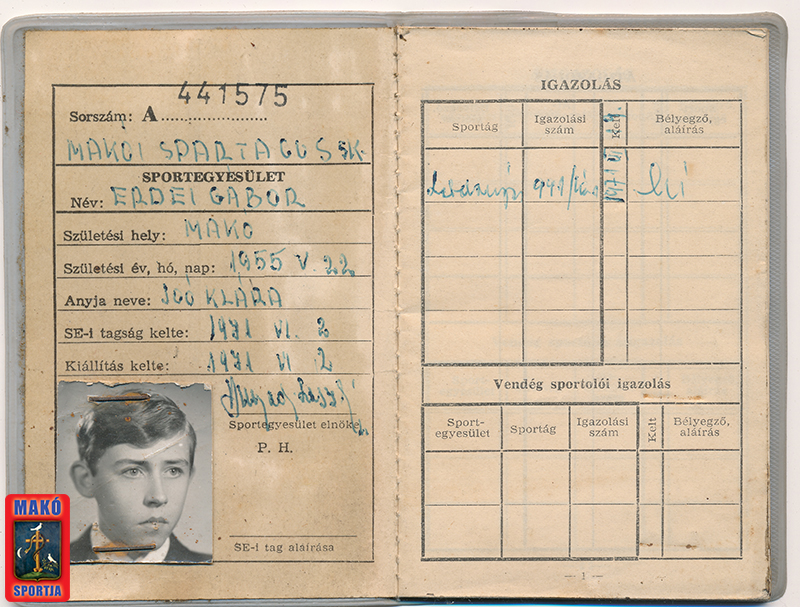 Sorszám: A 441575
MAKÓI SPARTACUS SK.
SPORTEGYESÜLET
Név: ERDEI GÁBOR
Születési hely: MAKÓ
Születési év, hó, nap: 1955 V. 22
Anyja neve: JOÓ KLÁRA
SE-i tagság kelte: 1971 VI. 2
Kiállítás kelte: 1971 VI 2
Sportegyesület elnöke
P. H.
SE-i tag aláírása
MAKÓ
SPORTJA
IGAZOLÁS
Sportág
Igazolási
szám
Kelt.
Bélyegző,
aláírás
Vendég sportolói igazolás
Sport-
egyesület
Sportág
Igazolási
szám
Kelt
Bélyegző,
aláírás
— 1 —